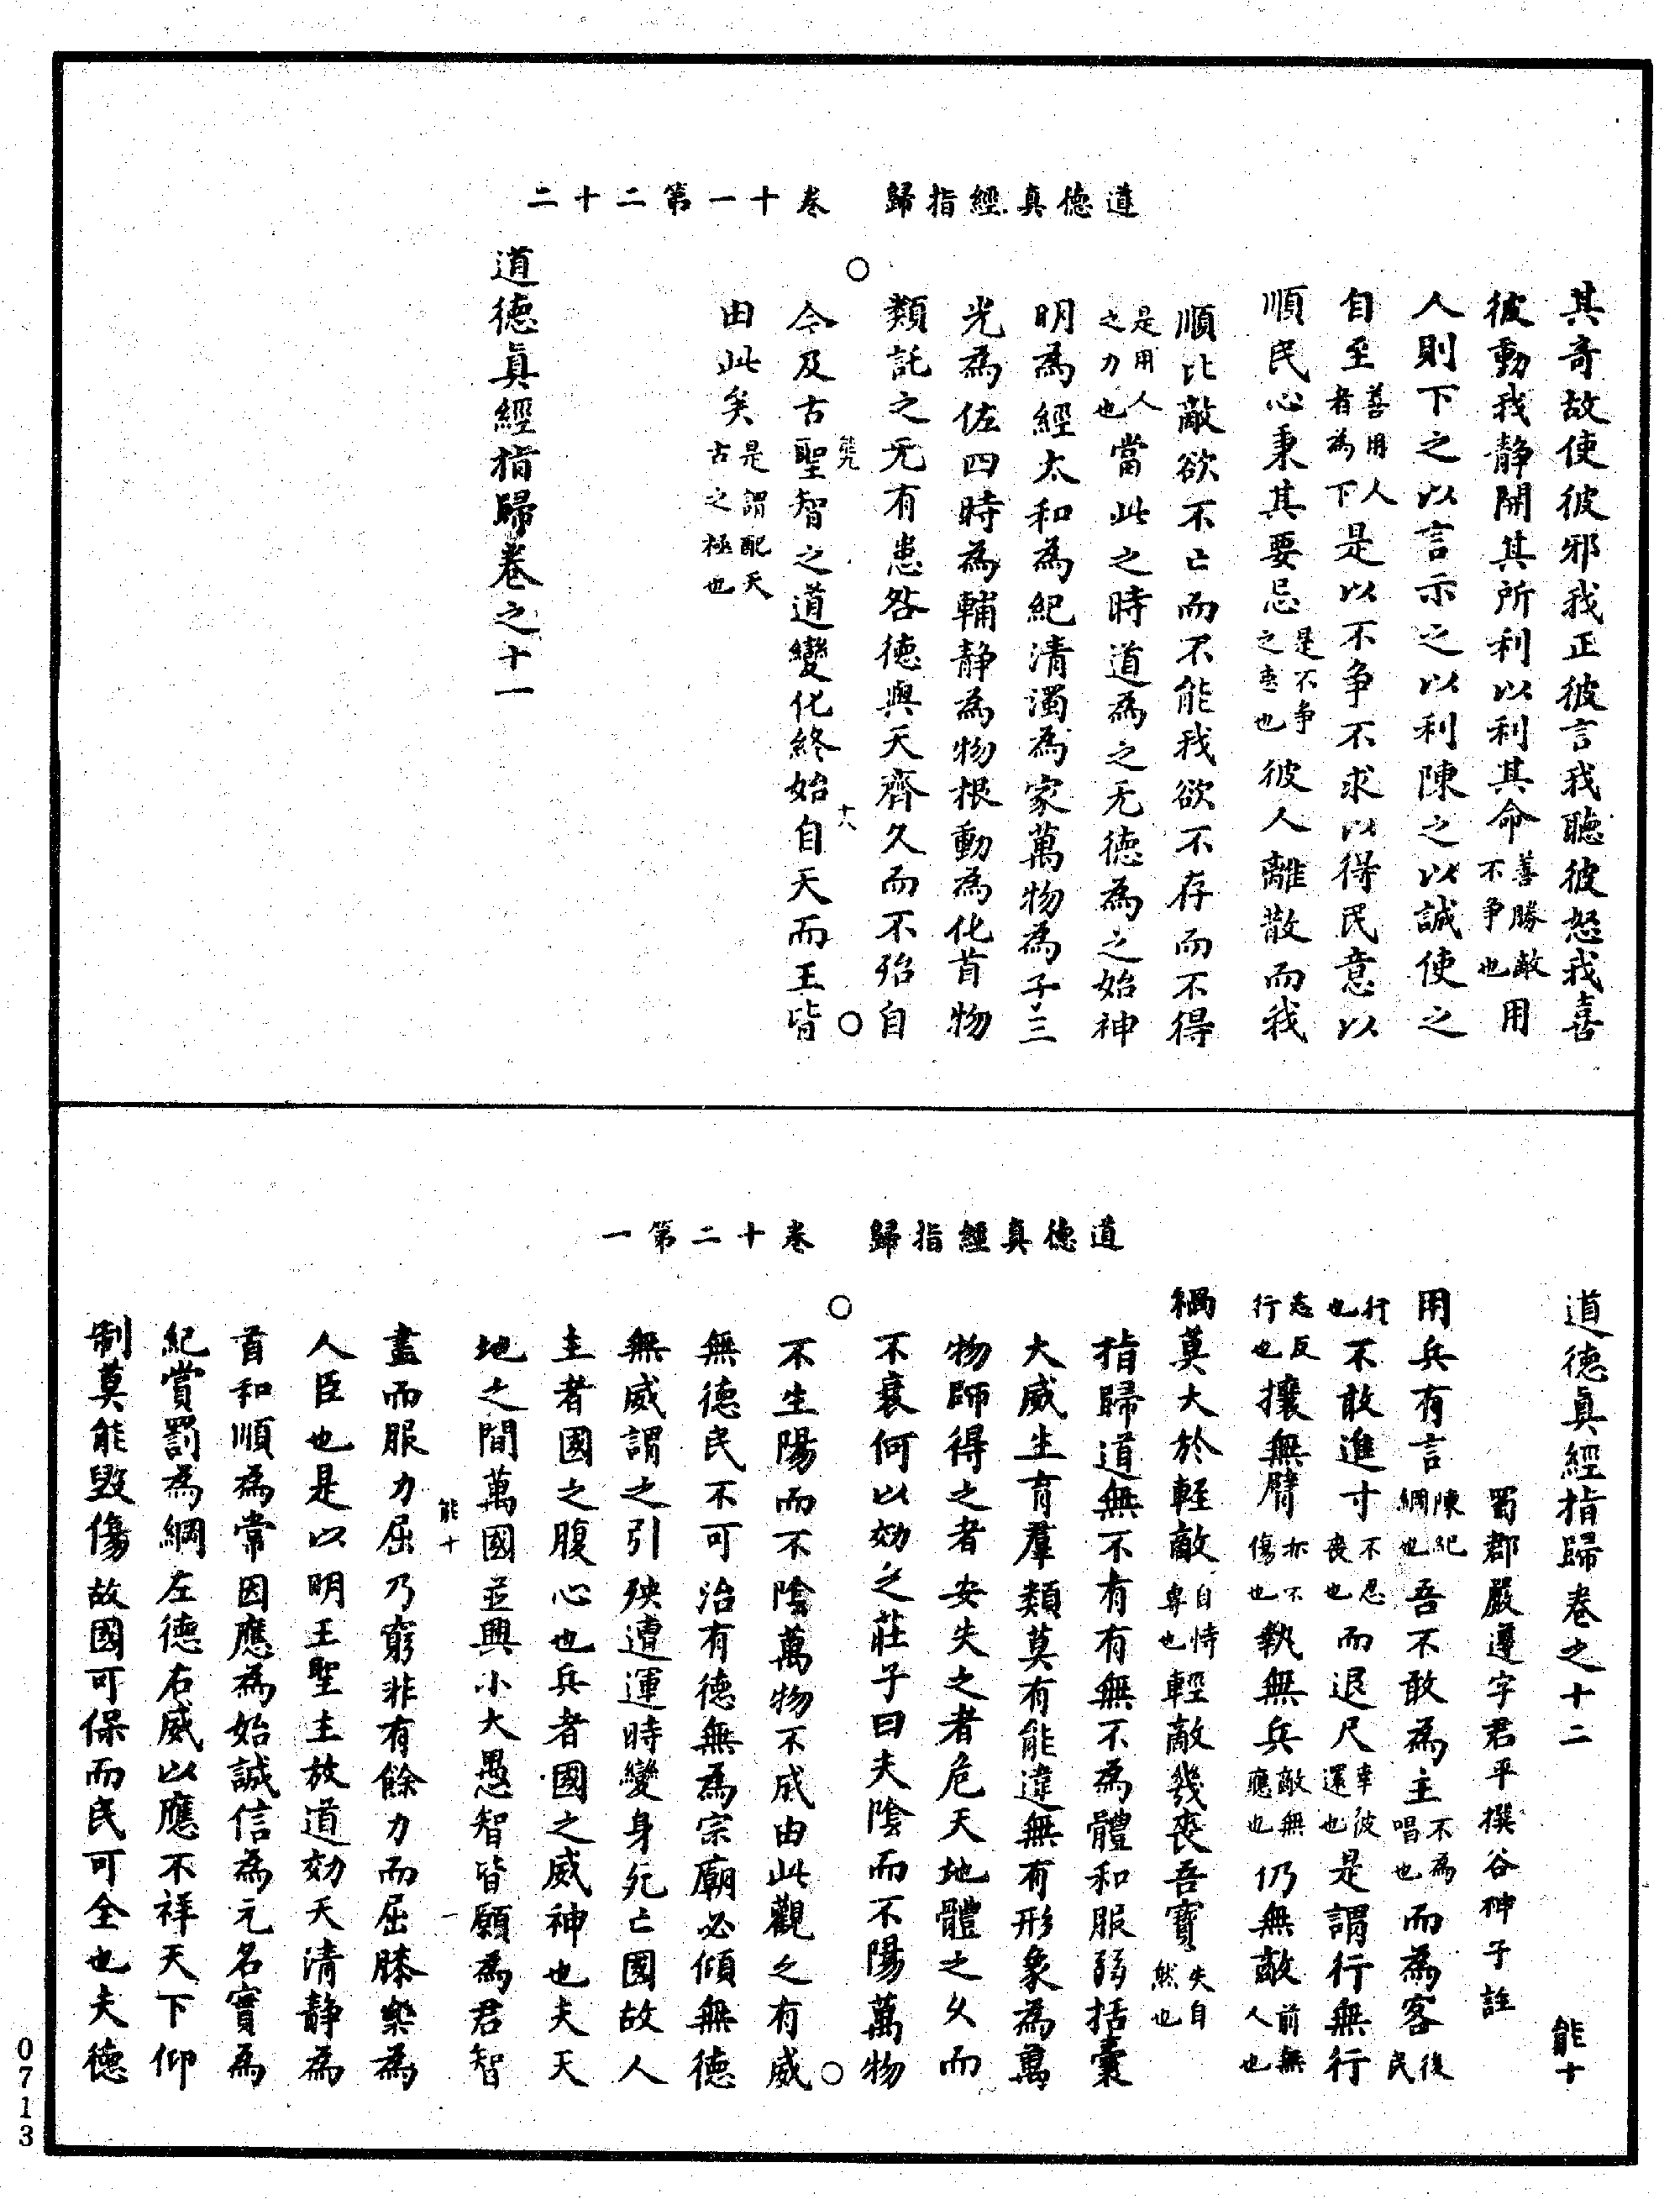 道德真經指歸　卷十一第二十二
其奇故使彼邪我正彼言我聽彼怒我喜
彼動我静開其所利以利其命善勝敵不争也用
人則下之以言示之以利陳之以誠使之
自至善用人者為下是以不争不求以得民意以
順民心秉其要忌是不争之德也彼人離散而我
順比敵欲不亡而不能我欲不存而不得
是用人之力也當此之時道為之无德為之始神
明為經太和為紀清濁為家萬物為子三
光為佐四時為輔静為物根動為化首物
類託之无有患咎德與天齊久而不殆自
能九　十八
今及古聖智之道變化終始自天而王皆
由此矣是謂配天古之極也
道德眞經指歸卷之十一
道德真經指歸　卷十二第一
道德眞經指歸卷之十二　能十
蜀郡嚴遵字君平撰谷神子註
用兵有言陳紀綱也吾不敢為主不為唱也而為客後民
行也不敢進寸不忍喪也而退尺幸彼還也是謂行無行
志反行也攘無臂亦不傷也執無兵敵無應也仍無敵前無人也
禍莫大於輕敵自恃專也輕敵幾喪吾寶失自然也
指歸道無不有有無不為體和服弱括囊
大威生育羣類莫有能違無有形象為萬
物師得之者安失之者危天地體之久而
不衰何以効之莊子曰夫陰而不陽萬物
不生陽而不陰萬物不成由此觀之有威
無德民不可治有德無為宗廟必傾無德
無威謂之引殃遭運時變身死亡國故人
主者國之腹心也兵者國之威神也夫天
地之間萬國並興小大愚智皆願為君智
能十　一
盡而服力屈乃窮非有餘力而屈膝樂為
人臣也是以明王聖主放道効天清静為
首和順為常因應為始誠信為元名實為
紀賞罰為綱左德右威以應不祥天下仰
制莫能毀傷故國可保而民可全也夫德
0713